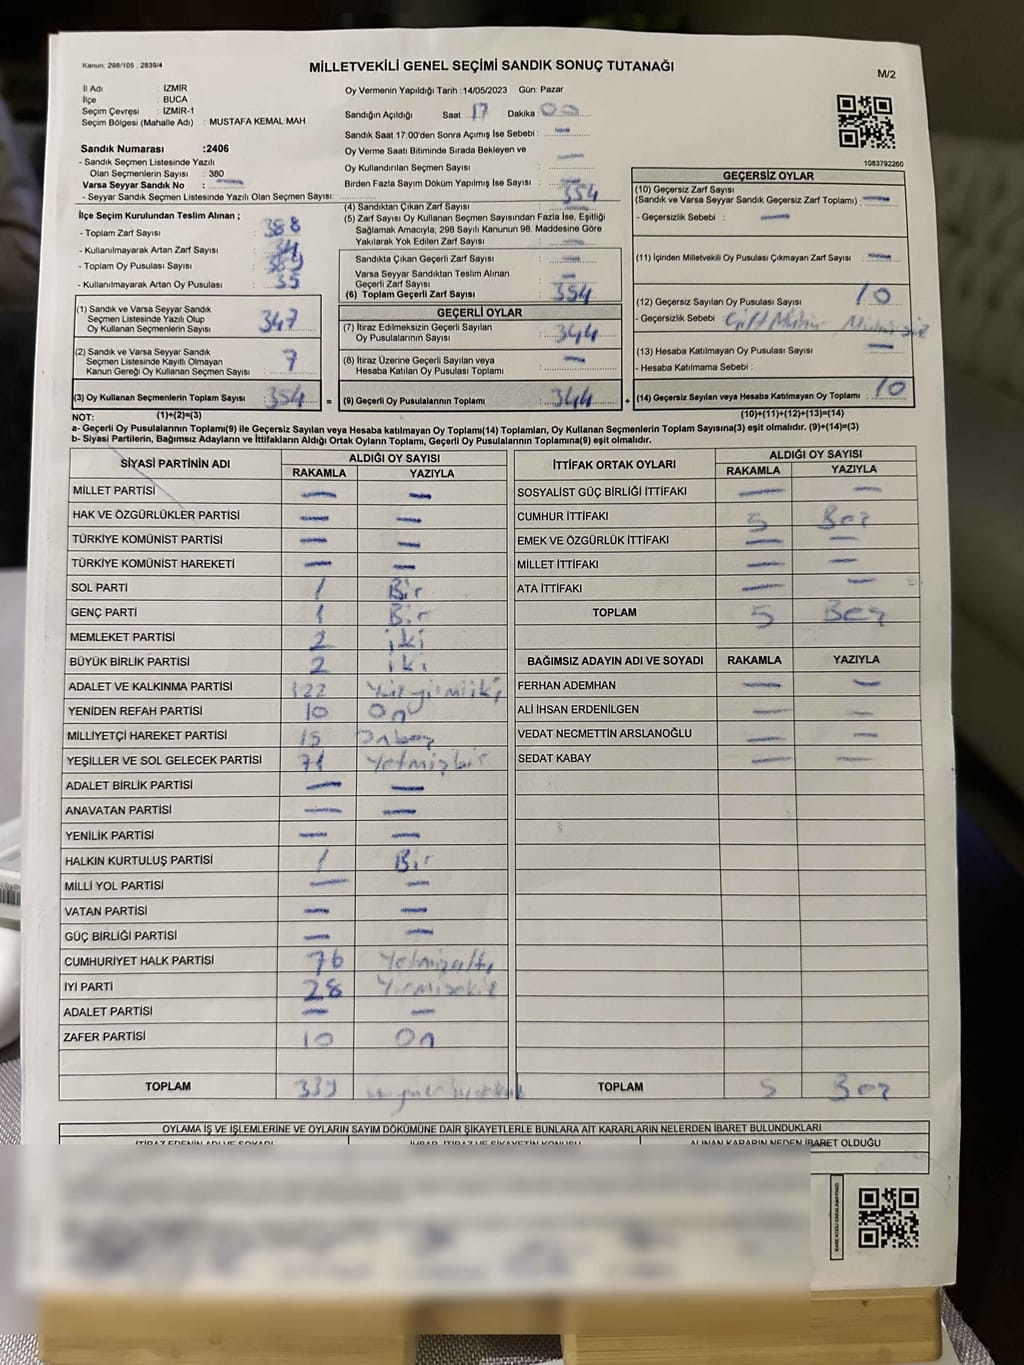 Kanun, 298/105 , 2839/4
MİLLETVEKİLİ GENEL SEÇİMİ SANDIK SONUÇ TUTANAĞI
M/2
İl Adı : İZMİR
İlçe : BUCA
Seçim Çevresi : İZMİR-1
Seçim Bölgesi (Mahalle Adı) : MUSTAFA KEMAL MAH.
Oy Vermenin Yapıldığı Tarih :14/05/2023 Gün: Pazar
Sandığın Açıldığı Saat: 17 Dakika: 00
Sandık Saat 17:00'den Sonra Açımış İse Sebebi : —
Oy Verme Saati Bitiminde Sırada Bekleyen ve
Oy Kullandırılan Seçmen Sayısı : —
Birden Fazla Sayım Döküm Yapılmış İse Sayısı : —
1083792260
Sandık Numarası :2406
- Sandık Seçmen Listesinde Yazılı
Olan Seçmenlerin Sayısı : 380
Varsa Seyyar Sandık No : —
- Seyyar Sandık Seçmen Listesinde Yazılı Olan Seçmen Sayısı:
İlçe Seçim Kurulundan Teslim Alınan ;
- Toplam Zarf Sayısı : 388
- Kullanılmayarak Artan Zarf Sayısı : 34
- Toplam Oy Pusulası Sayısı :
- Kullanılmayarak Artan Oy Pusulası : 35
(1) Sandık ve Varsa Seyyar Sandık
Seçmen Listesinde Yazılı Olup
Oy Kullanan Seçmenlerin Sayısı : 347
(2) Sandık ve Varsa Seyyar Sandık
Seçmen Listesinde Kayıtlı Olmayan
Kanun Gereği Oy Kullanan Seçmen Sayısı : 7
(3) Oy Kullanan Seçmenlerin Toplam Sayısı : 354 =
(4) Sandıktan Çıkan Zarf Sayısı : 354
(5) Zarf Sayısı Oy Kullanan Seçmen Sayısından Fazla İse, Eşitliği
Sağlamak Amacıyla; 298 Sayılı Kanunun 98. Maddesine Göre
Yakılarak Yok Edilen Zarf Sayısı : —
Sandıkta Çıkan Geçerli Zarf Sayısı : —
Varsa Seyyar Sandıktan Teslim Alınan
Geçerli Zarf Sayısı : —
(6) Toplam Geçerli Zarf Sayısı : 354
GEÇERLİ OYLAR
(7) İtiraz Edilmeksizin Geçerli Sayılan
Oy Pusulalarının Sayısı : 344
(8) İtiraz Üzerine Geçerli Sayılan veya
Hesaba Katılan Oy Pusulası Toplamı : —
(9) Geçerli Oy Pusulalarının Toplamı : 344 +
GEÇERSİZ OYLAR
(10) Geçersiz Zarf Sayısı
(Sandık ve Varsa Seyyar Sandık Geçersiz Zarf Toplamı) : —
- Geçersizlik Sebebi : —
(11) İçinden Milletvekili Oy Pusulası Çıkmayan Zarf Sayısı : —
(12) Geçersiz Sayılan Oy Pusulası Sayısı : 10
- Geçersizlik Sebebi : Çift Mühür
(13) Hesaba Katılmayan Oy Pusulası Sayısı : —
- Hesaba Katılmama Sebebi :
(14) Geçersiz Sayılan veya Hesaba Katılmayan Oy Toplamı : 10
NOT: (1)+(2)=(3) (10)+(11)+(12)+(13)=(14)
a- Geçerli Oy Pusulalarının Toplamı(9) ile Geçersiz Sayılan veya Hesaba katılmayan Oy Toplamı(14) Toplamları, Oy Kullanan Seçmenlerin Toplam Sayısına(3) eşit olmalıdır. (9)+(14)=(3)
b- Siyasi Partilerin, Bağımsız Adayların ve İttifakların Aldığı Ortak Oyların Toplamı, Geçerli Oy Pusulalarının Toplamına(9) eşit olmalıdır.
SİYASİ PARTİNİN ADI ALDIĞI OY SAYISI
RAKAMLA YAZIYLA
MİLLET PARTİSİ — —
HAK VE ÖZGÜRLÜKLER PARTİSİ — —
TÜRKİYE KOMÜNİST PARTİSİ — —
TÜRKİYE KOMÜNİST HAREKETİ — —
SOL PARTİ 1 Bir
GENÇ PARTİ 1 Bir
MEMLEKET PARTİSİ 2 iki
BÜYÜK BİRLİK PARTİSİ 2 iki
ADALET VE KALKINMA PARTİSİ 122 Yüzyirmiiki
YENİDEN REFAH PARTİSİ 10 On
MİLLİYETÇİ HAREKET PARTİSİ 15 Onbeş
YEŞİLLER VE SOL GELECEK PARTİSİ 71 Yetmişbir
ADALET BİRLİK PARTİSİ — —
ANAVATAN PARTİSİ — —
YENİLİK PARTİSİ — —
HALKIN KURTULUŞ PARTİSİ 1 Bir
MİLLİ YOL PARTİSİ — —
VATAN PARTİSİ — —
GÜÇ BİRLİĞİ PARTİSİ — —
CUMHURİYET HALK PARTİSİ 76 Yetmişaltı
İYİ PARTİ 28 Yirmisekiz
ADALET PARTİSİ — —
ZAFER PARTİSİ 10 On
TOPLAM 339
İTTİFAK ORTAK OYLARI ALDIĞI OY SAYISI
RAKAMLA YAZIYLA
SOSYALİST GÜÇ BİRLİĞİ İTTİFAKI — —
CUMHUR İTTİFAKI 5 Beş
EMEK VE ÖZGÜRLÜK İTTİFAKI — —
MİLLET İTTİFAKI — —
ATA İTTİFAKI — —
TOPLAM 5 Beş
BAĞIMSIZ ADAYIN ADI VE SOYADI RAKAMLA YAZIYLA
FERHAN ADEMHAN — —
ALİ İHSAN ERDENİLGEN — —
VEDAT NECMETTİN ARSLANOĞLU — —
SEDAT KABAY — —
TOPLAM 5 Beş
OYLAMA İŞ VE İŞLEMLERİNE VE OYLARIN SAYIM DÖKÜMÜNE DAİR ŞİKAYETLERLE BUNLARA AİT KARARLARIN NELERDEN İBARET BULUNDUKLARI
İTİRAZ EDENİN ADI VE SOYADI İHBAR, İTİRAZ VE ŞİKAYETİN KONUSU ALINAN KARARIN NEDEN İBARET OLDUĞU